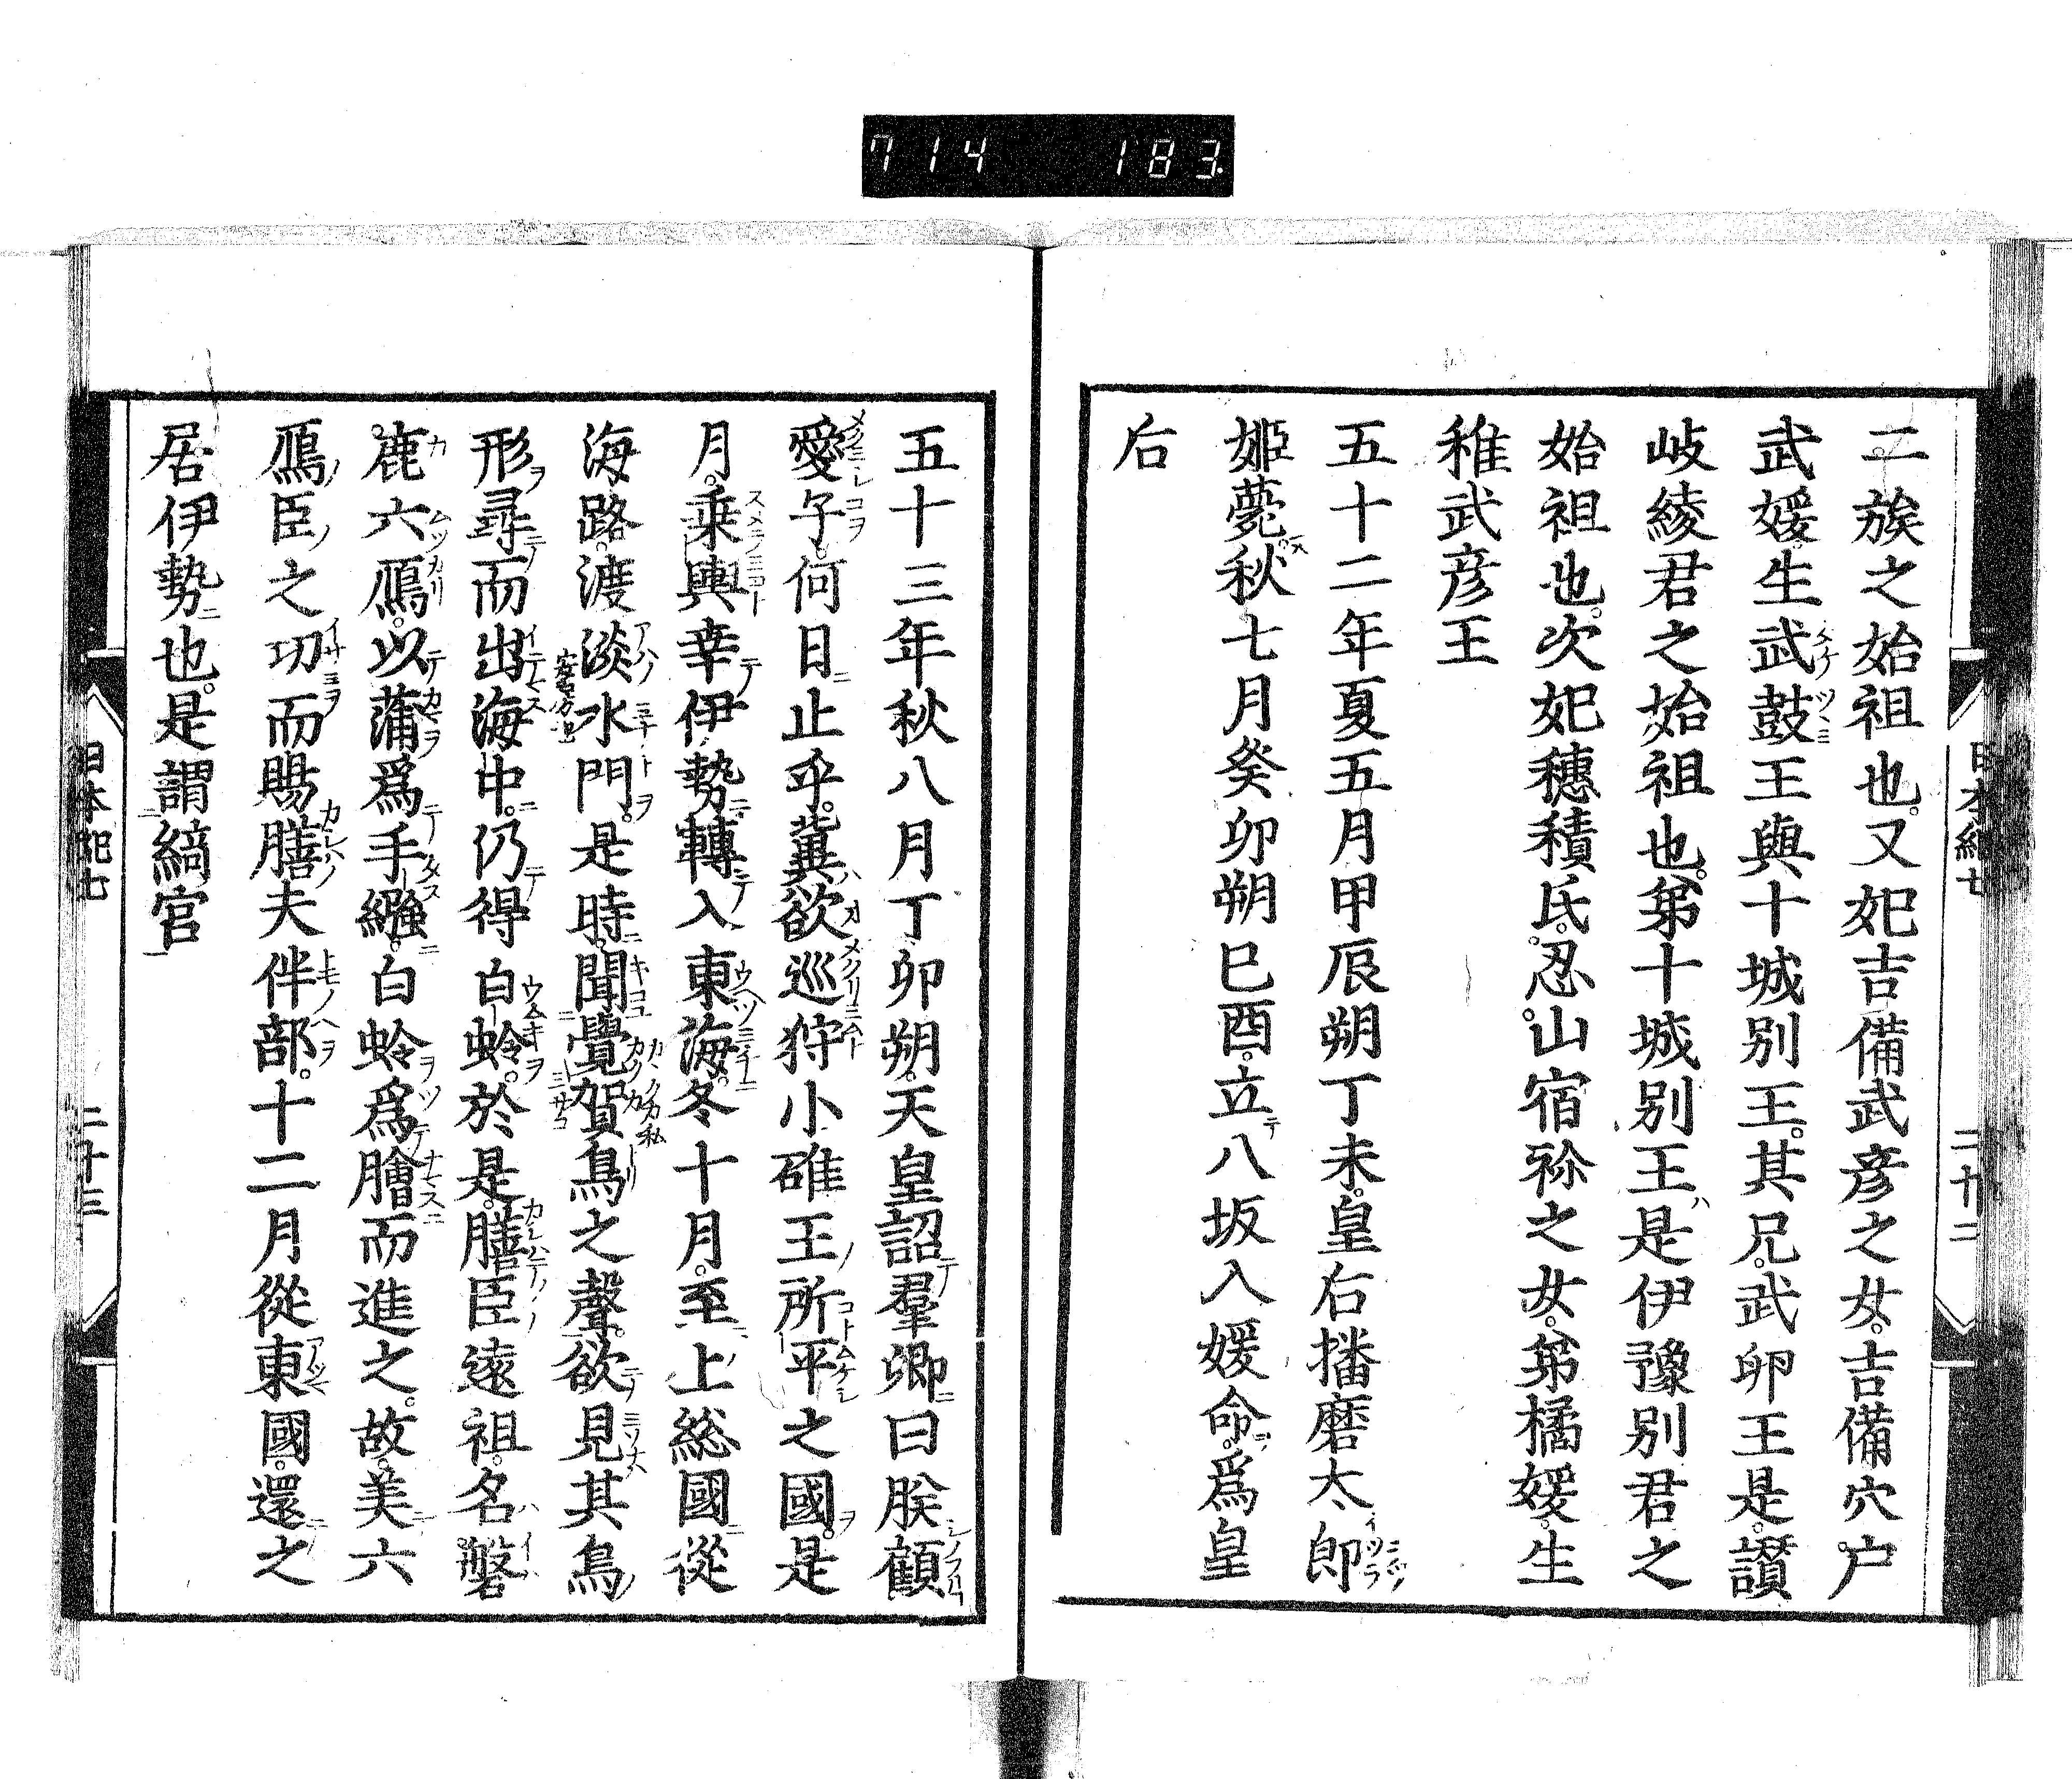 714 183
日本紀七 二十二
二族之始祖也。又妃吉備武彦之女。吉備穴戸
武媛。生武鼓王與十城別王。其兄。武卵王是。讃
岐綾君之始祖也。第十城別王是伊豫別君之
始祖也。次妃穗積氏。忍山宿祢之女。弟橘媛。生
稚武彦王
五十二年夏五月甲辰朔丁未。皇后播磨太郎
姫薨。秋七月癸卯朔己酉。立八坂入媛命。爲皇
后
五十三年秋八月丁卯朔。天皇詔羣卿曰朕顧
愛子。何日止乎。冀欲巡狩小碓王所平之國。是
月。乗輿幸伊勢轉入東海。冬十月。至上総國從
海路。渡淡水門。是時。聞覺賀鳥之聲。欲見其鳥
形尋而出海中。仍得白蛤。於是。膳臣遠祖。名磐
鹿六鴈。以蒲爲手繦。白蛤爲膾而進之。故。美六
鴈臣之功而賜膳夫伴部。十二月從東國。還之
居伊勢也。是謂綺宮
日本紀七 二十三